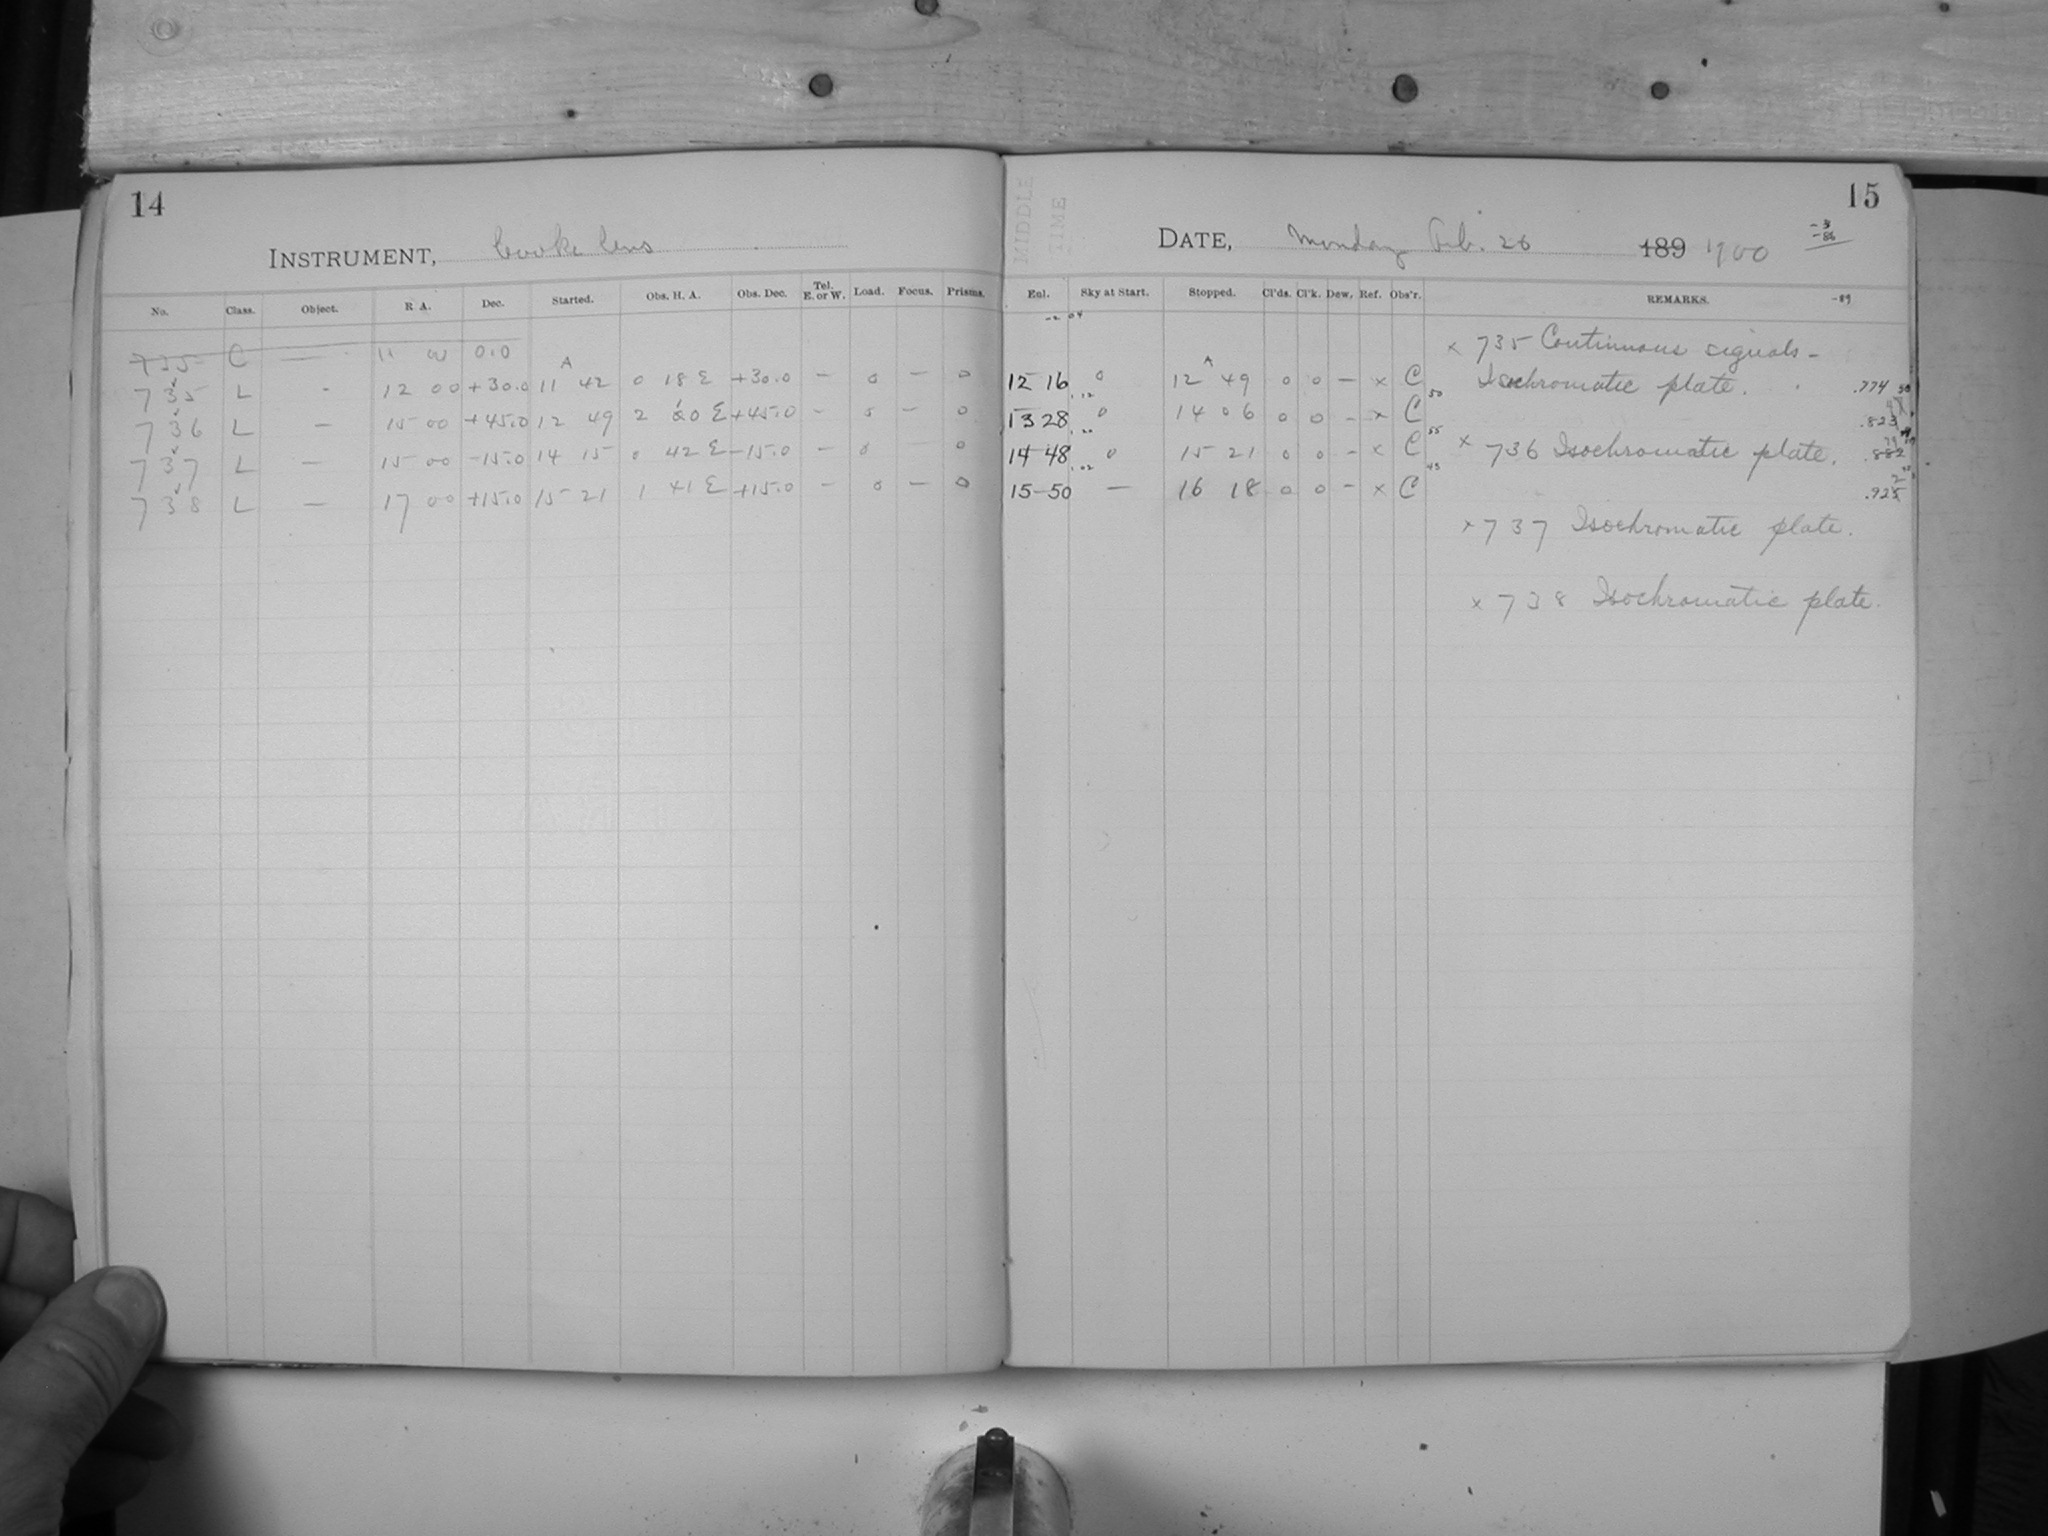 14
INSTRUMENT, Cooke lens
No. Class. Object. R A. Dec. Started. Obs. H. A. Obs. Dec. Tel. E. or W. Load. Focus. Prisms.
735 C — 11 00 0.0
735 L - 12 00 +30.0 11 42 0 18 E +30.0 — 0 — 0
736 L — 15 00 +45.0 12 49 2 20 E +45.0 - 0 — 0
737 L — 15 00 -15.0 14 15 0 42 E -15.0 — 0 — 0
738 L — 17 00 +15.0 15 21 1 41 E +15.0 — 0 — 0
MIDDLE
TIME
15
DATE, Monday Feb. 26 189 1900
-3
-86
Eul. Sky at Start. Stopped. Cl'ds. Cl'k. Dew. Ref. Obs'r. REMARKS. -89
-2 04
A A
12 16 0 12 49 0 0 — x C
13 28 0 14 06 0 0 - x C
14 48 0 15 21 0 0 - x C
15 50 — 16 18 0 0 - x C
x 735 Continuous signals -
Isochromatic plate. .774
.823
x 736 Isochromatic plate. .882
.925
x 737 Isochromatic plate.
x 738 Isochromatic plate.